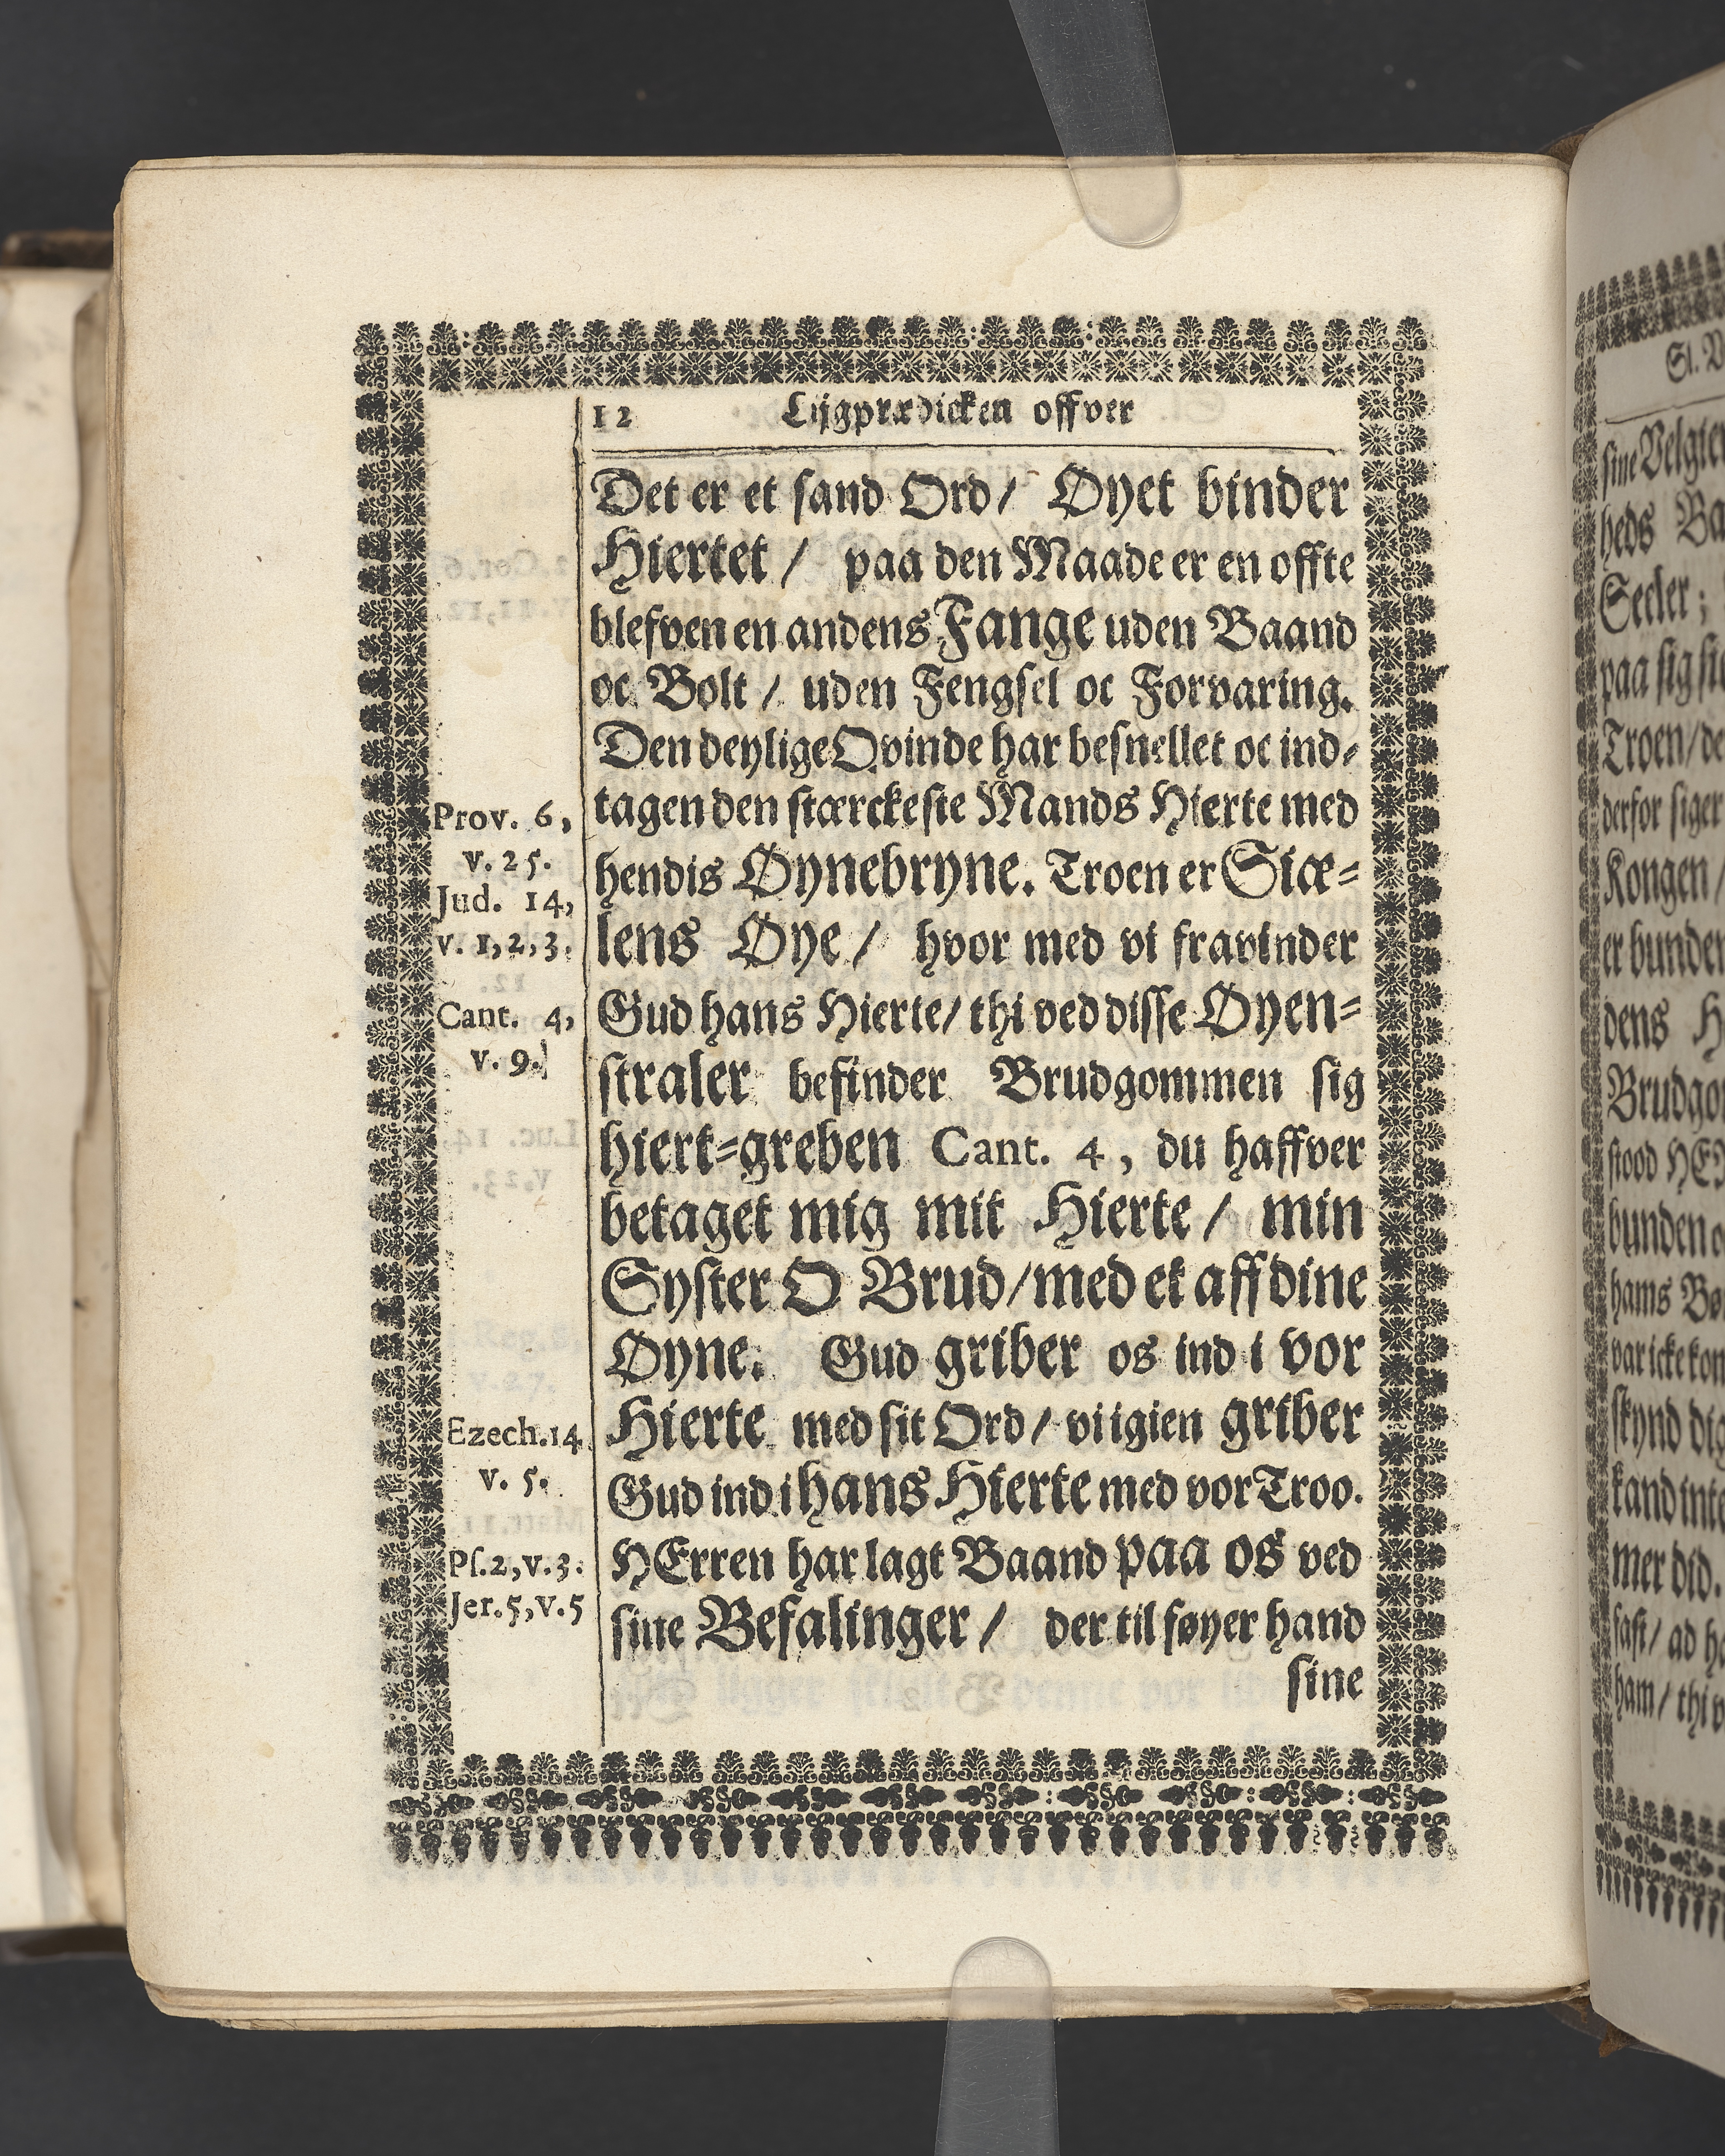 12 Lijgprædicken offver
Det er et sand Ord/ Øyet binder
Hiertet / paa den Maade er en offte
blefven en andens Fange uden Baand
oc Bolt / uden Fengsel oc Forvaring.
Den deylige Qvinde har besnellet oc ind-
tagen den stærckeste Mands Hierte med
hendis Øynebryne. Troen er Siæ-
lens Øye/ hvor med vi fravinder
Gud hans Hierte/ thi ved disse Øyen-
straler befinder Brudgommen sig
hiert-greben Cant. 4, du haffver
betaget mig mit Hierte / min
Syster O Brud/med et aff dine
Øyne. Gud griber os ind i vor
Hierte med sit Ord/ vi igien griber
Gud ind i hans Hierte med vor Troo.
HErren har lagt Baand paa os ved
sine Befalinger / der til føyer hand
sine
Prov. 6,
v. 25.
Jud. 14,
v. 1,2,3.
Cant. 4,
v. 9.
Ezech.14
v. 5.
Ps.2,v.3.
Jer.5,v.5
sine
heds
Seeler;
paa sig
Troen/
derfor siger
Kongen/
er bunden
dens
stood
bunden
hams
mer did.
fast/ ad
ham/ thi